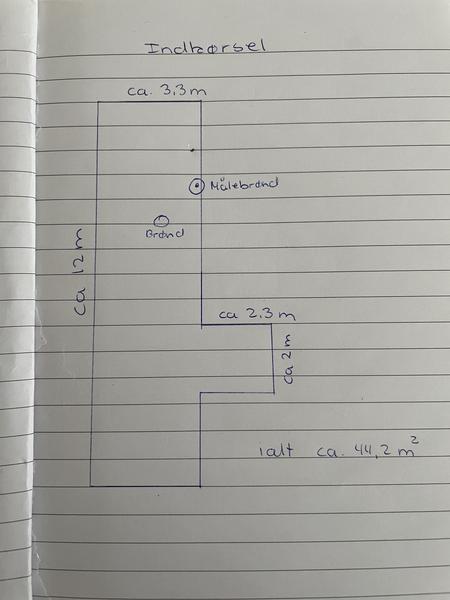 Indkørsel
ca. 3,3 m
Målebrønd
Brønd
ca 12 m
ca 2,3 m
ca 2 m
ialt ca. 44,2 m²